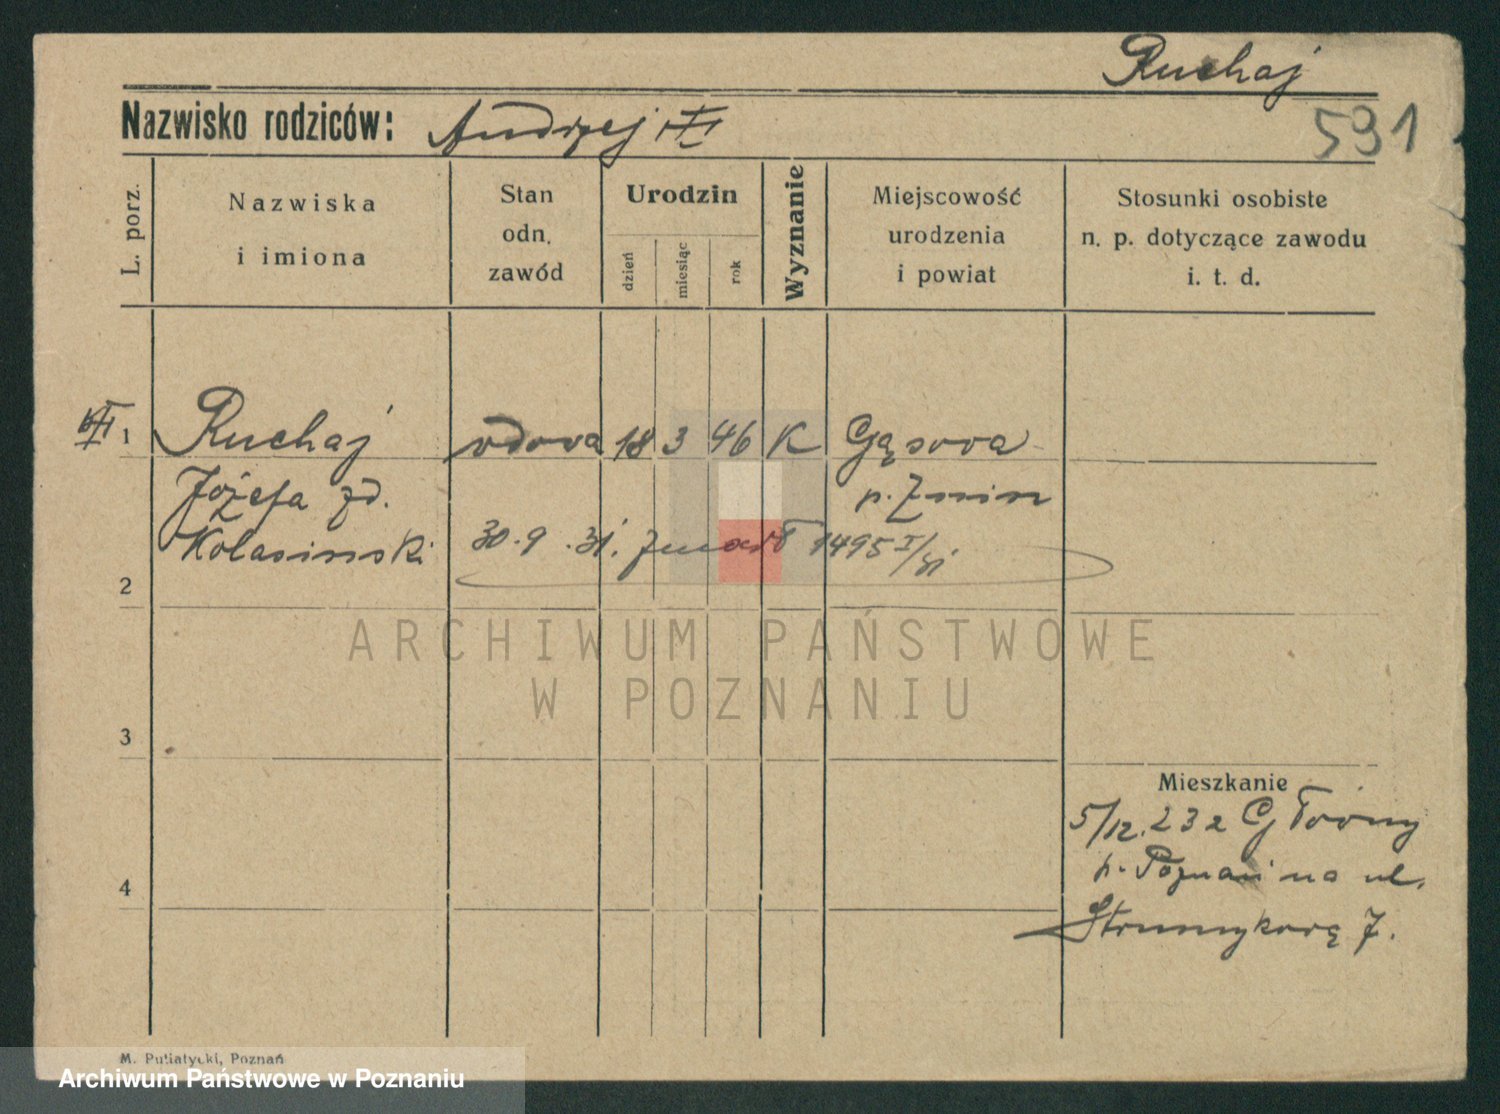 Ruchaj
Nazwisko rodziców: Andrzej
591
L. porz.
Nazwiska
i imiona
Stan
odn.
zawód
Urodzin
dzień
miesiąc
rok
Wyznanie
Miejscowość
urodzenia
i powiat
Stosunki osobiste
n. p. dotyczące zawodu
i. t. d.
1 Ruchaj wdowa 18 3 46 K Gąsowa
Józefa zd. p. Żnin
Kolasinski 30.9.31. zmarł 1495 I/31
2
ARCHIWUM PAŃSTWOWE
W POZNANIU
3
Mieszkanie
5/12.232 Główny
p. Poznań na ul.
4
Strumykową 7.
M. Putiatycki, Poznań
Archiwum Państwowe w Poznaniu